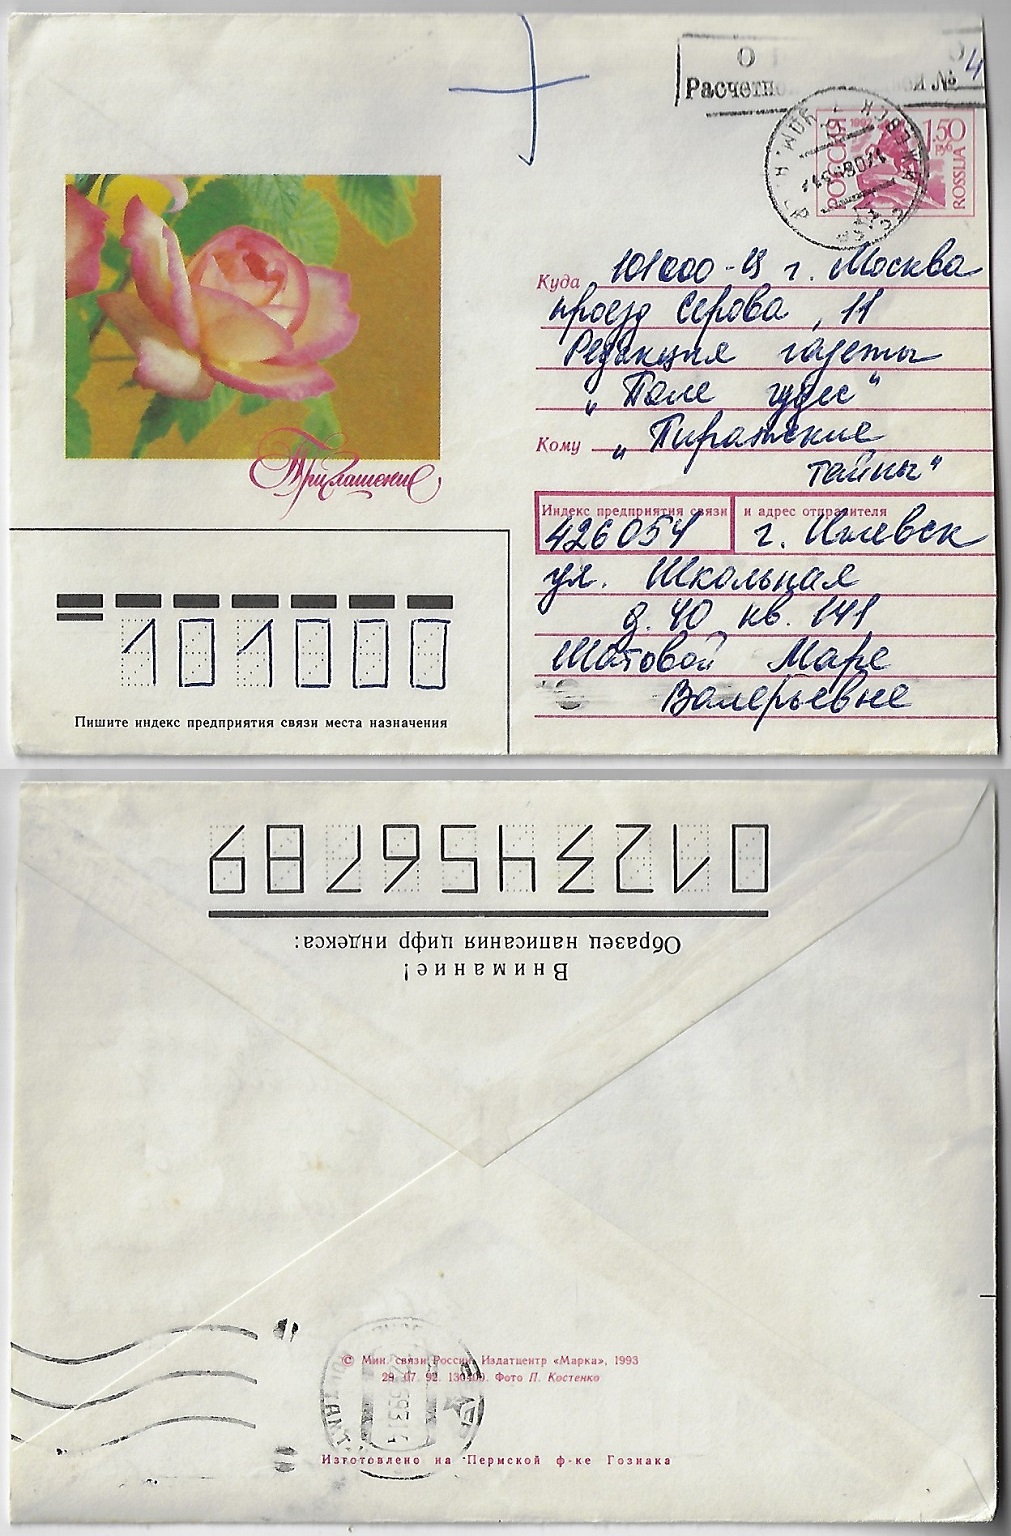 Расчетно № 4
РОССИЯ 1992 1.50 руб ROSSIJA
Куда 101000-Ц г. Москва
проезд Серова, 11
Редакция газеты
"Поле чудес"
Кому "Пиратские
тайны"
Приглашение
Индекс предприятия связи и адрес отправителя
426054 г. Ижевск
ул. Школьная
д. 40 кв. 141
Шатовой Маре
Валерьевне
101000
Пишите индекс предприятия связи места назначения
0123456789
Образец написания цифр индекса:
Внимание!
© Мин. связи России. Издатцентр «Марка», 1993
29. 07. 92. 130400. Фото П. Костенко
Изготовлено на Пермской ф-ке Гознака